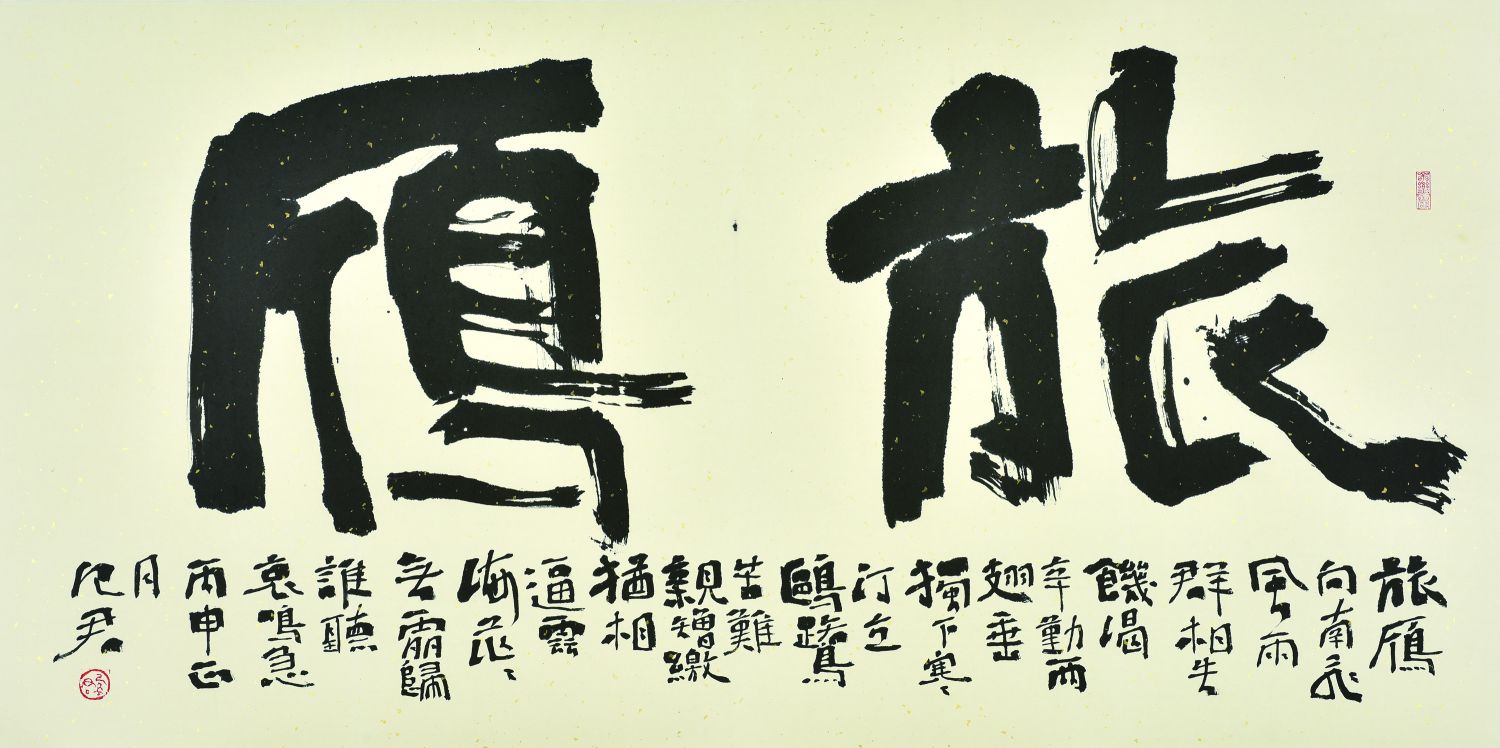 旅鴈
旅鴈
向南飛
風雨
群相失
饑渴
辛勤兩
翅垂
獨下寒
汀立
鷗鷺
苦難
親矰繳
猶相
逼雲
海茫〻
無處歸
誰聽
哀鳴急
丙申正
月